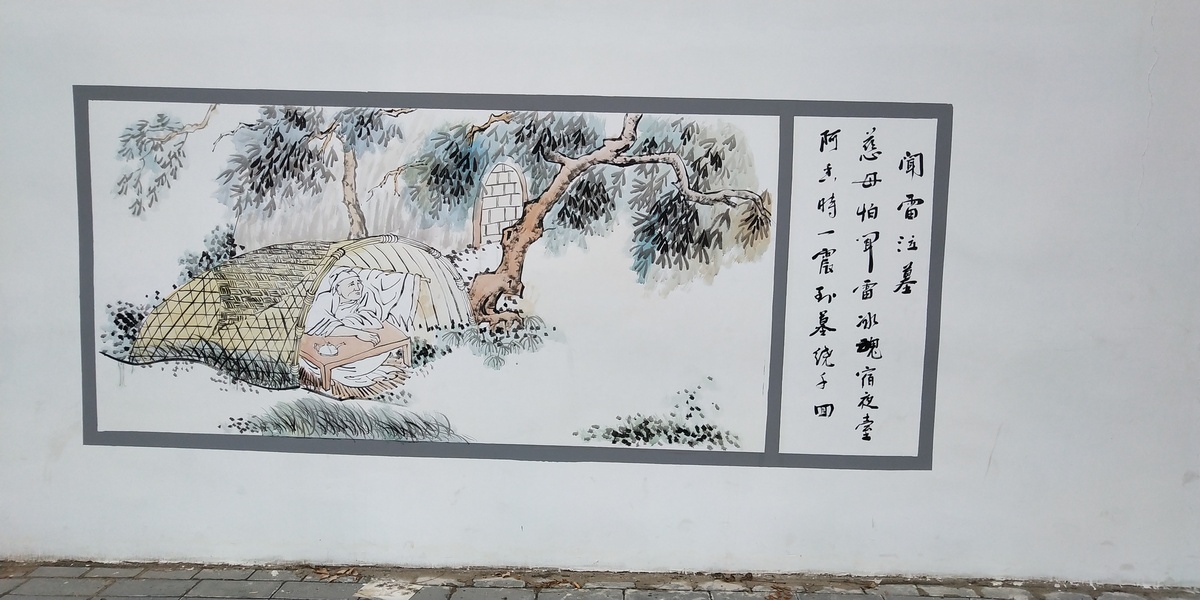 聞雷泣墓
慈母怕聞雷冰魂宿夜臺
阿香時一震到墓绕千回